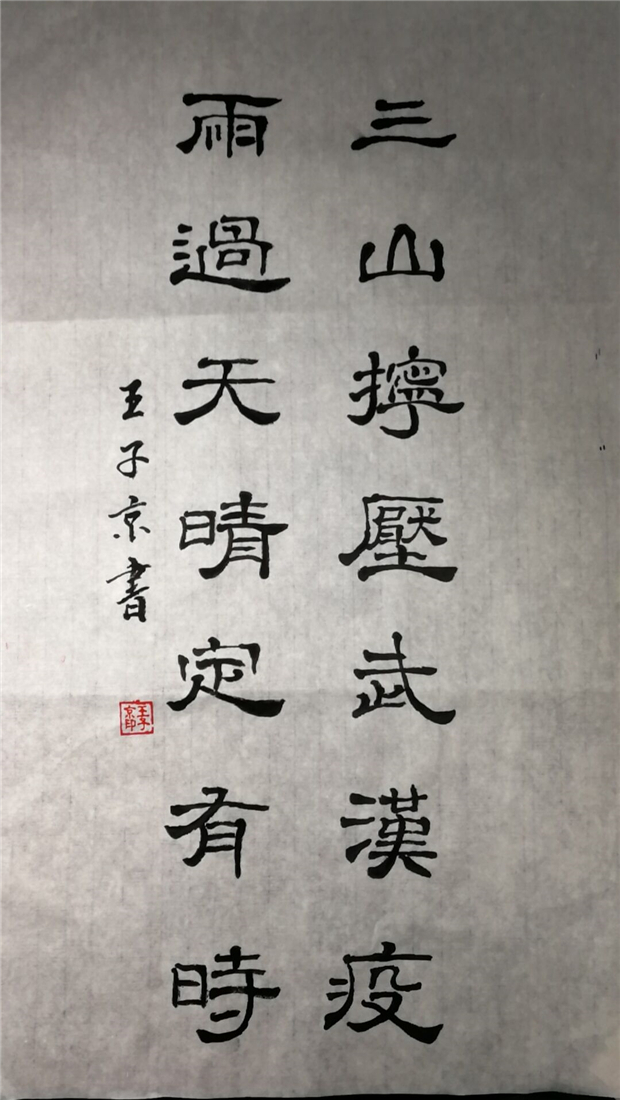 三山擰壓武漢疫
雨過天晴定有時
王子京書
王子京印